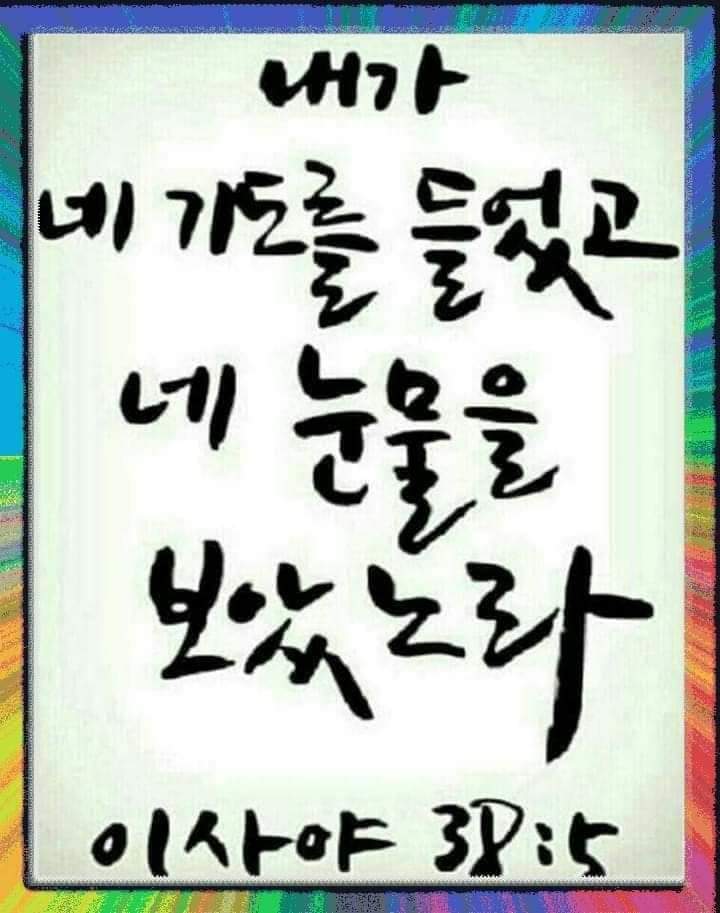 내가
네 기도를 들었고
네 눈물을
보았노라
이사야 38:5